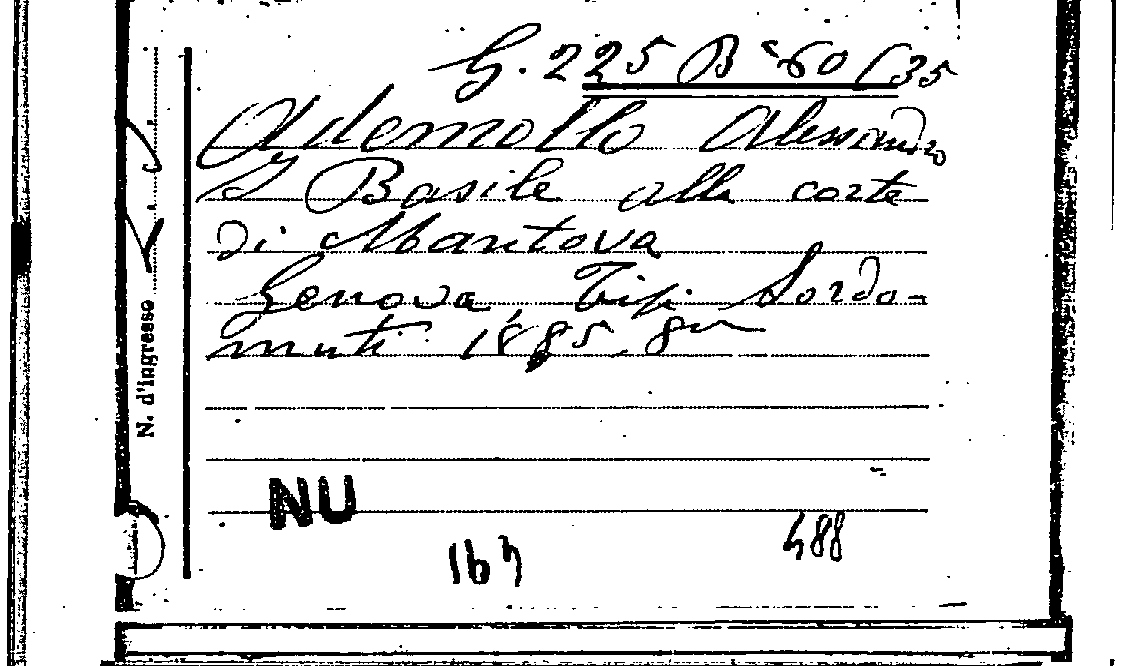 G. 225 B 60 (35
Ademollo Alessandro
I Basile alla corte
di Mantova
Genova, Tip. Sordo-
muti 1885. 8º
N. d'ingresso
NU
488